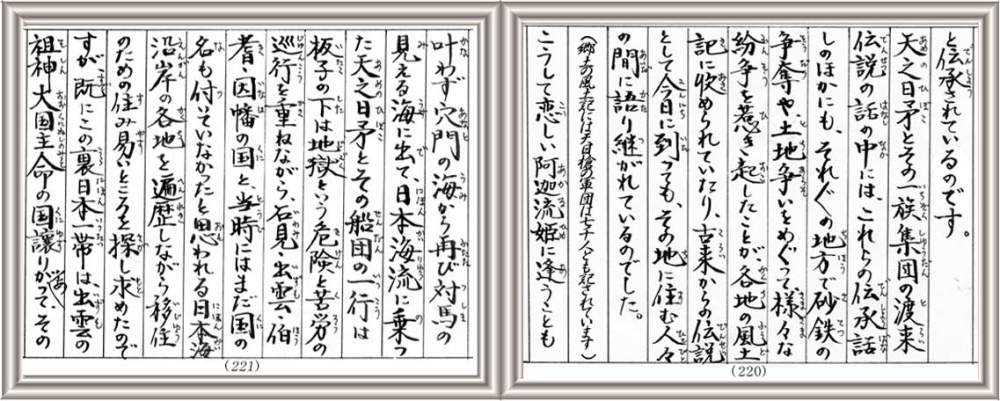 と伝承されているのです。
天之日矛とその一族集団の渡来
伝説の話の中には、これらの伝承話
しのほかにも、それぞれの地方で砂鉄の
争奪や土地争いをめぐって様々な
紛争を惹き起したことが、各地の風土
記に收められていたり、古来からの伝説
として今日に到っても、その地に住む人々
の間に語り継がれているのでした。
こうして恋しい阿迦流姫に逢うことも
(220)
叶わず穴門の海から再び対馬の
見える海に出て、日本海流に乗っ
た天之日矛とその船団の一行は
板子の下は地獄という危険と苦労の
巡行を重ねながら、石見・出雲・伯
耆・因幡の国と、当時にはまだ国の
名も付いていなかったと思われる日本海
沿岸の各地を遍歴しながら移住
のための住み易いところを探し求めたので
すが既にこの裏日本一帯は、出雲の
祖神大国主命の国譲りがあって、その
(221)